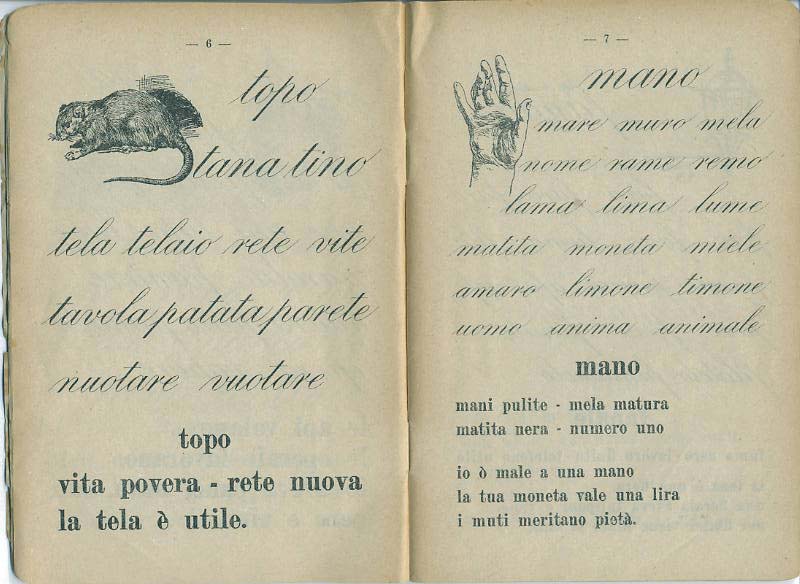 — 6 —
topo
tana tino
tela telaio rete vite
tavola patata parete
nuotare vuotare
topo
vita povera - rete nuova
la tela è utile.
— 7 —
mano
mare muro mela
nome rame remo
lama lima lume
matita moneta miele
amaro limone timone
uomo anima animale
mano
mani pulite - mela matura
matita nera - numero uno
io ò male a una mano
la tua moneta vale una lira
i muti meritano pietà.